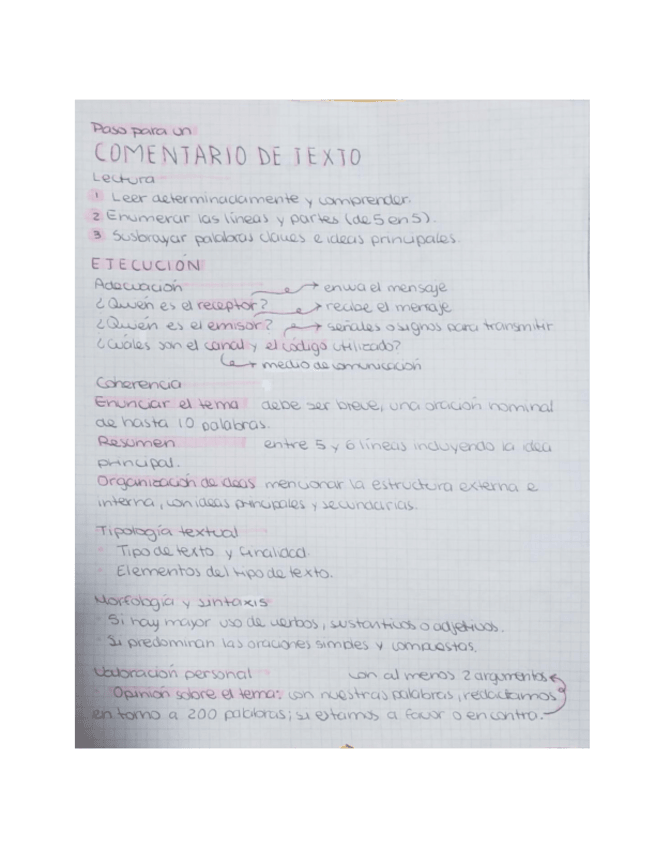 Paso para un
COMENTARIO DE TEXTO
Lectura
1 Leer determinadamente y comprender.
2 Enumerar las líneas y partes (de 5 en 5).
3 Susbrayar palabras claves e ideas principales.
EJECUCIÓN
Adecuación → envia el mensaje
¿Quién es el receptor? → recibe el mensaje
¿Quién es el emisor? → señales o signos para transmitir
¿Cuáles son el canal y el código utilizado?
→ medio de comunicación
Coherencia
Enunciar el tema debe ser breve, una oración nominal
de hasta 10 palabras.
Resumen entre 5 y 6 líneas incluyendo la idea
principal.
Organización de ideas mencionar la estructura externa e
interna, con ideas principales y secundarias.
Tipología textual
· Tipo de texto y finalidad.
· Elementos del tipo de texto.
Morfología y sintaxis
· Si hay mayor uso de verbos, sustantivos o adjetivos.
· Si predominan las oraciones simples y compuestas.
Valoración personal con al menos 2 argumentos
· Opinión sobre el tema: con nuestras palabras, redactamos
en torno a 200 palabras; si estamos a favor o en contra.